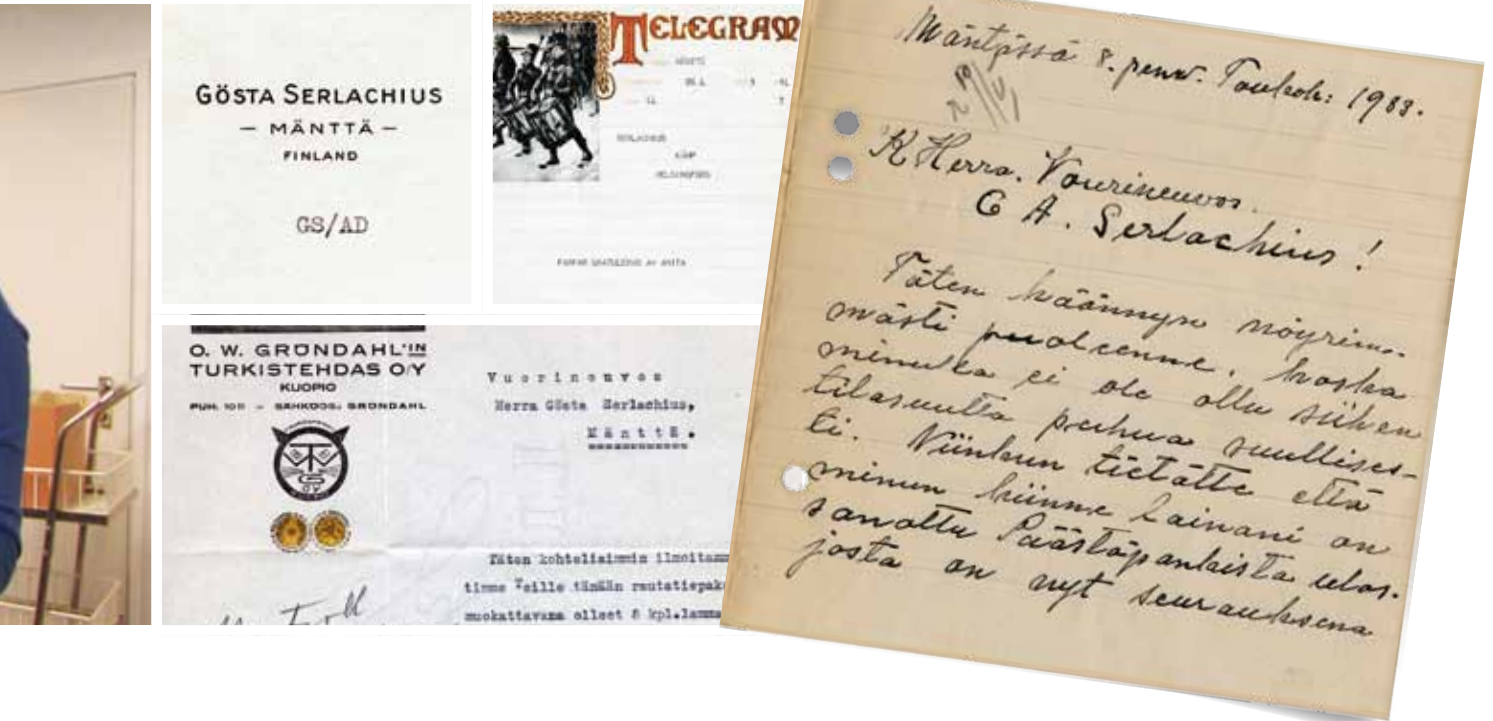 GÖSTA SERLACHIUS
— MÄNTTÄ —
FINLAND
GS/AD
TELEGRAM
MÄNTTÄ
SERLACHIUS
KÄMP
HELSINGFORS
FARFAR GRATULERAS AV ANITA
O. W. GRÖNDAHL'IN
TURKISTEHDAS O/Y
KUOPIO
PUH. 1011 – SÄHKÖOS.: GRÖNDAHL
Vuorineuvos
Herra Gösta Serlachius,
Mänttä.
Täten kohteliaimmin ilmoitamm
timme Teille tämän rautatiepak
muokattavana olleet 8 kpl.lamma
Mäntässä 8. penä. Toukok: 1933.
K Herra. Vourineuvos.
G A. Serlachius!
Täten käännyn nöyrim-
mästi puoleenne, koska
minulla ei ole ollu siihen
tilasuutta puhua suullises-
ti. Niinkun tietätte että
minun kiinne lainani on
sanottu Säästöpankista ulos.
josta on nyt seurauksena